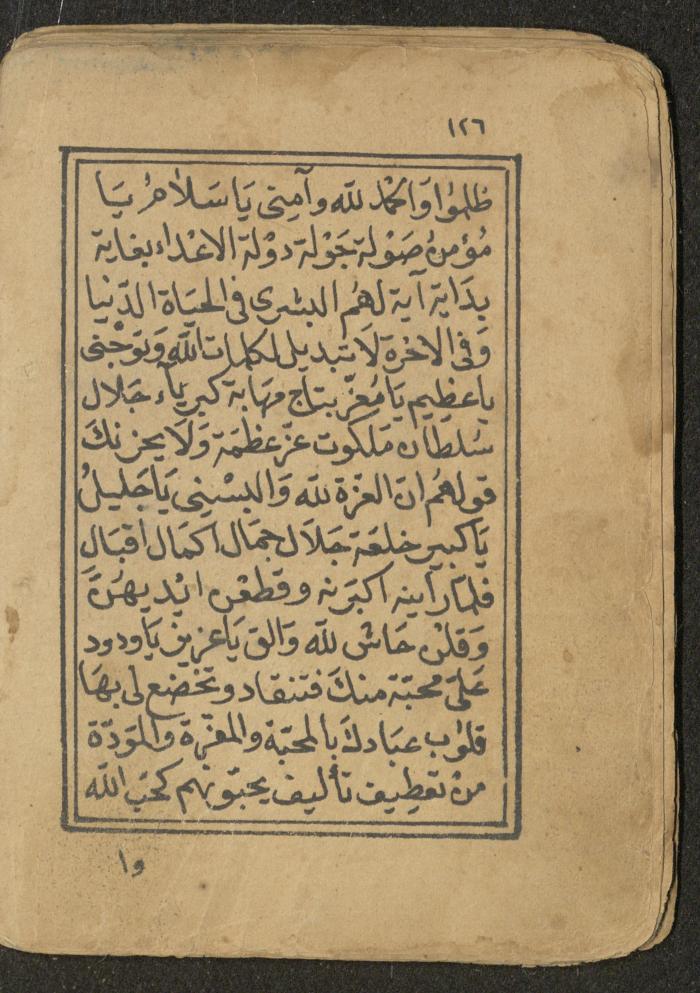 ١٢٦
ظلموا وَالحمْد لله وآمِنى يَا سَلاٰمُ يَا
مُؤْمنُ صَوْلة جَوْلة دوْلة الاعْداء بغاية
بدَاية آية لهمُ البشرى فى الحيَاة الدّنيا
وَفى الاخرة لاَ تبديل لكلمات اللّه وَتوّجْنى
يا عظيم يَا مُعزّ بتاج مهَابة كبرياء جَلال
سُلطان مَلكوت عزّ عظمَة وَلَا يحزنكَ
قولهمُ انّ العزّة لله وَالبسْنى يَا جَليلُ
يَا كبير خلعَة جَلَال جمَال اكمَال اقبَال
فلمّا راينه اكبرنه وقطعْن ايْديهُنَّ
وَقلن حَاش لله وَالق يَا عزيز يَا ودود
عَلىّ محبّة منكَ فتنقاد وتخضع لى بهَا
قلوب عبَادكَ بالمحبّة والمعزّة والموَدّة
منْ تعطيف تأليف يحبّونهم كحبّ اللّه
وا